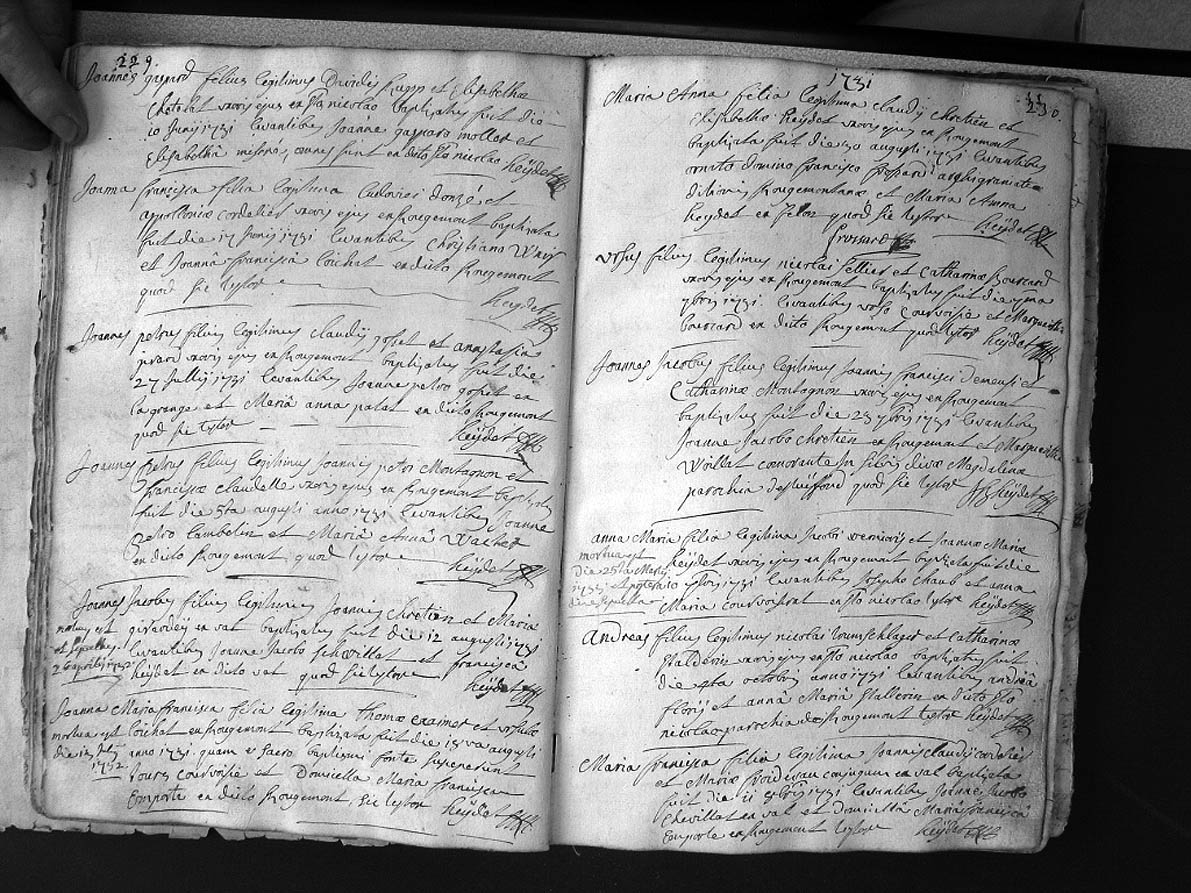 229.
Joannes gaspard filius legitimus Davidis Rapp et Elisabethæ
Chatelat uxoris ejus en Sto nicolao baptizatus fuit die
10 Junij 1731 levantibus Joanne gasparo mollet et
Elisabethâ , omnes sunt en dicto Sto nicolao Keÿdet
Joanna francisca filia legitima Ludovici donzé et
appolloniæ cordelier uxoris ejus en Rougemont baptizata
fuit die 17 Junij 1731 levantibus Christiano
et Joannâ franciscâ Coichat en dicto Rougemont
quod sic testor Keydet
Joannes petrus filius legitimus claudij gosset et anastasiæ
girard uxoris ejus en Rougemont baptizatus fuit die
27 Jullij 1731 levantibus Joanne petro gosset en
la grange et Mariâ anna palat en dicto Rougemont
quod sic testor Keydet
Joannes Petrus filius legitimus Joannis petri Montagnon et
franciscæ claudelle uxoris ejus en Rougemont baptizatus
fuit die 5ta augusti anno 1731 levantibus Joanne
Petro Lambelin et Mariâ Annâ
en dicto Rougemont quod testor Keÿdet
Joannes Jacobus filius legitimus Joannis Chretien et Maria
mortuus est girardey en val baptizatus fuit die 12 augusti 1731
et sepultus levantibus Joanne Jacobo et franciscâ
26 aprilis 1732 Keÿdet en dicto val quod sic testor Keÿdet
Joanna Maria francisca filia legitima thomæ cramer et
mortua est Coichat en Rougemont baptizata fuit die 18va augusti
die 12 anno 1731. quam e sacro baptismi fonte susceperunt
1732 courvoisie et Domicella Maria francisca
Emporte en dicto Rougemont, sic testor Keÿdet
1731
230.
Maria Anna filia legitima claudij chretien et
Elisabethæ Keydet uxoris ejus en Rougemont
baptizata fuit die 20 augusti 1731 levantibus
ornato domino francisco
ditionis Rougemontanæ et Maria Anna
Keydet en quod sic testor Keÿdet
frossard
Ursus filius legitimus nicolai tellier et Catharinæ Boursard
uxoris ejus en Rougemont baptizatus fuit die
7bris 1731. levantibus urso Courvoisie et Margueritta
boursard en dicto Rougemont quod testor Keÿdet
Joannes Jacobus filius legitimus Joannis francisci Demeusi et
Catharinæ Montagnon uxoris ejus en Rougemont
baptizatus fuit die 23 7bris 1731 levantibus
Joanne Jacobo Chretien en Rougemont et Margueritta
Woillat comorante In silvis divæ Magdalenæ
parochia quod sic testor Keÿdet
anna Maria filia legitima Jacobi et Joannæ Mariæ
mortua est Keÿdet uxoris ejus en Rougemont baptizata fuit die
die 25ta Martij
1732 et postera 10 7bris 1731 levantibus Josepho Chaub et anna
die sepulta Maria courvoisrat en Sto nicolao testor Keÿdet
Andreas filius legitimus nicolai et Catharinæ
Stalderin uxoris ejus en Sto nicolao baptizatus fuit
die 4ta octobris anno 1731 levantibus andreâ
florij et annâ Mariâ Stallerin en dicto Sto
nicolao parochia de Rougemont testor Keÿdet
Maria francisca filia legitima Joannis claudij cordelier
et Mariæ froidevau conjugum en val baptizata
fuit die 11 1731 levantibus Joanne Jacobo
Chevillat en val et domicellâ Mariâ franciscâ
Emporte en Rougemont testor Keÿdet